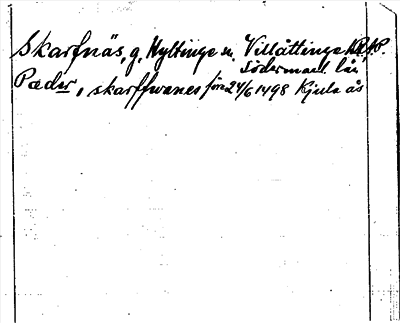 Skarfnäs, g, Hyltinge sn. Villåttinge hd.
Södermanl. län
Pæder, skarffwanes före 24/6 1498 Kjula ås